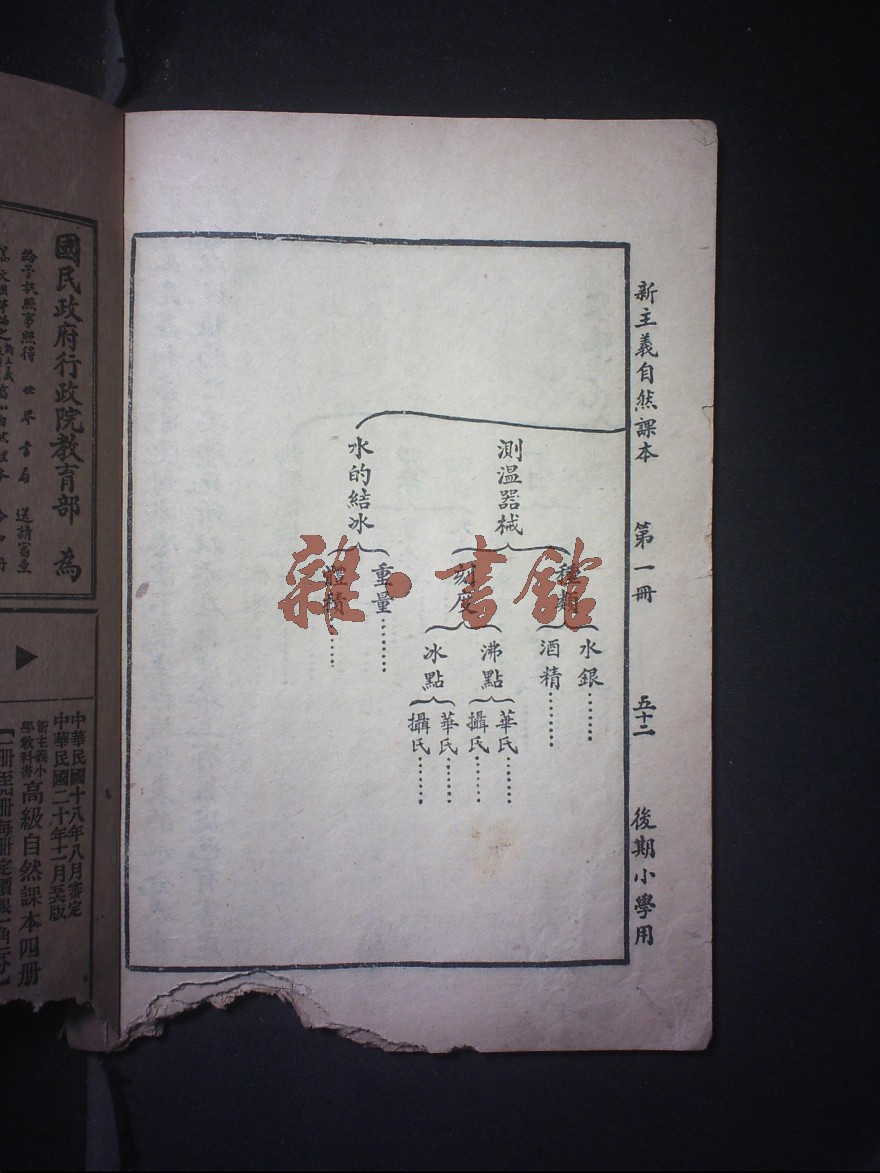 新主義自然課本 第一冊 五十二 後期小學用
測溫器械
種類
水銀………
酒精………
刻度
沸點
華氏………
攝氏………
冰點
華氏………
攝氏………
水的結冰
重量………
體積………
雜·書館
國民政府行政院教育部 為
給予執照事照得 世界書局 送請審查
中華民國十八年八月審定
中華民國二十年十二月
新主義小學教科書高級自然課本四册